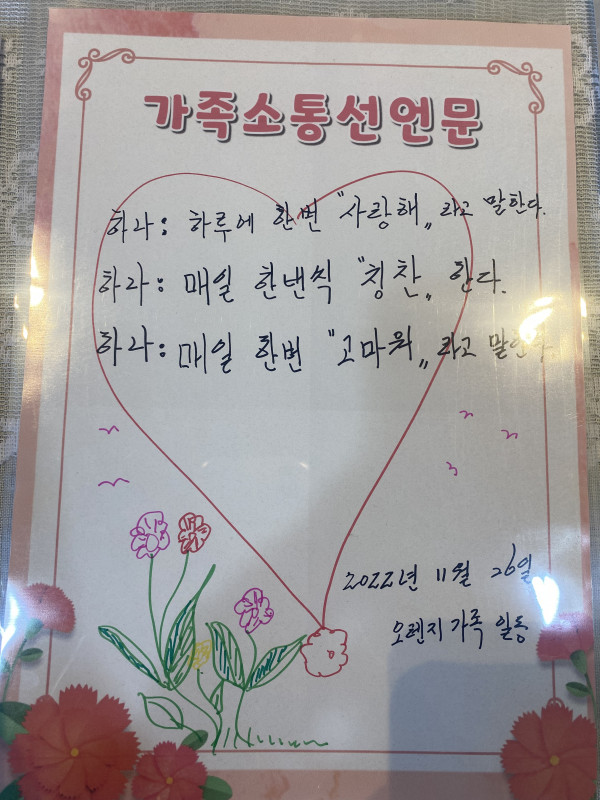 가족소통선언문
하라: 하루에 한번 "사랑해„ 라고 말한다.
하라: 매일 한번씩 "칭찬„ 한다.
하라: 매일 한번 "고마워„ 라고 말한다
2022년 11월 26일
오렌지 가족 일동